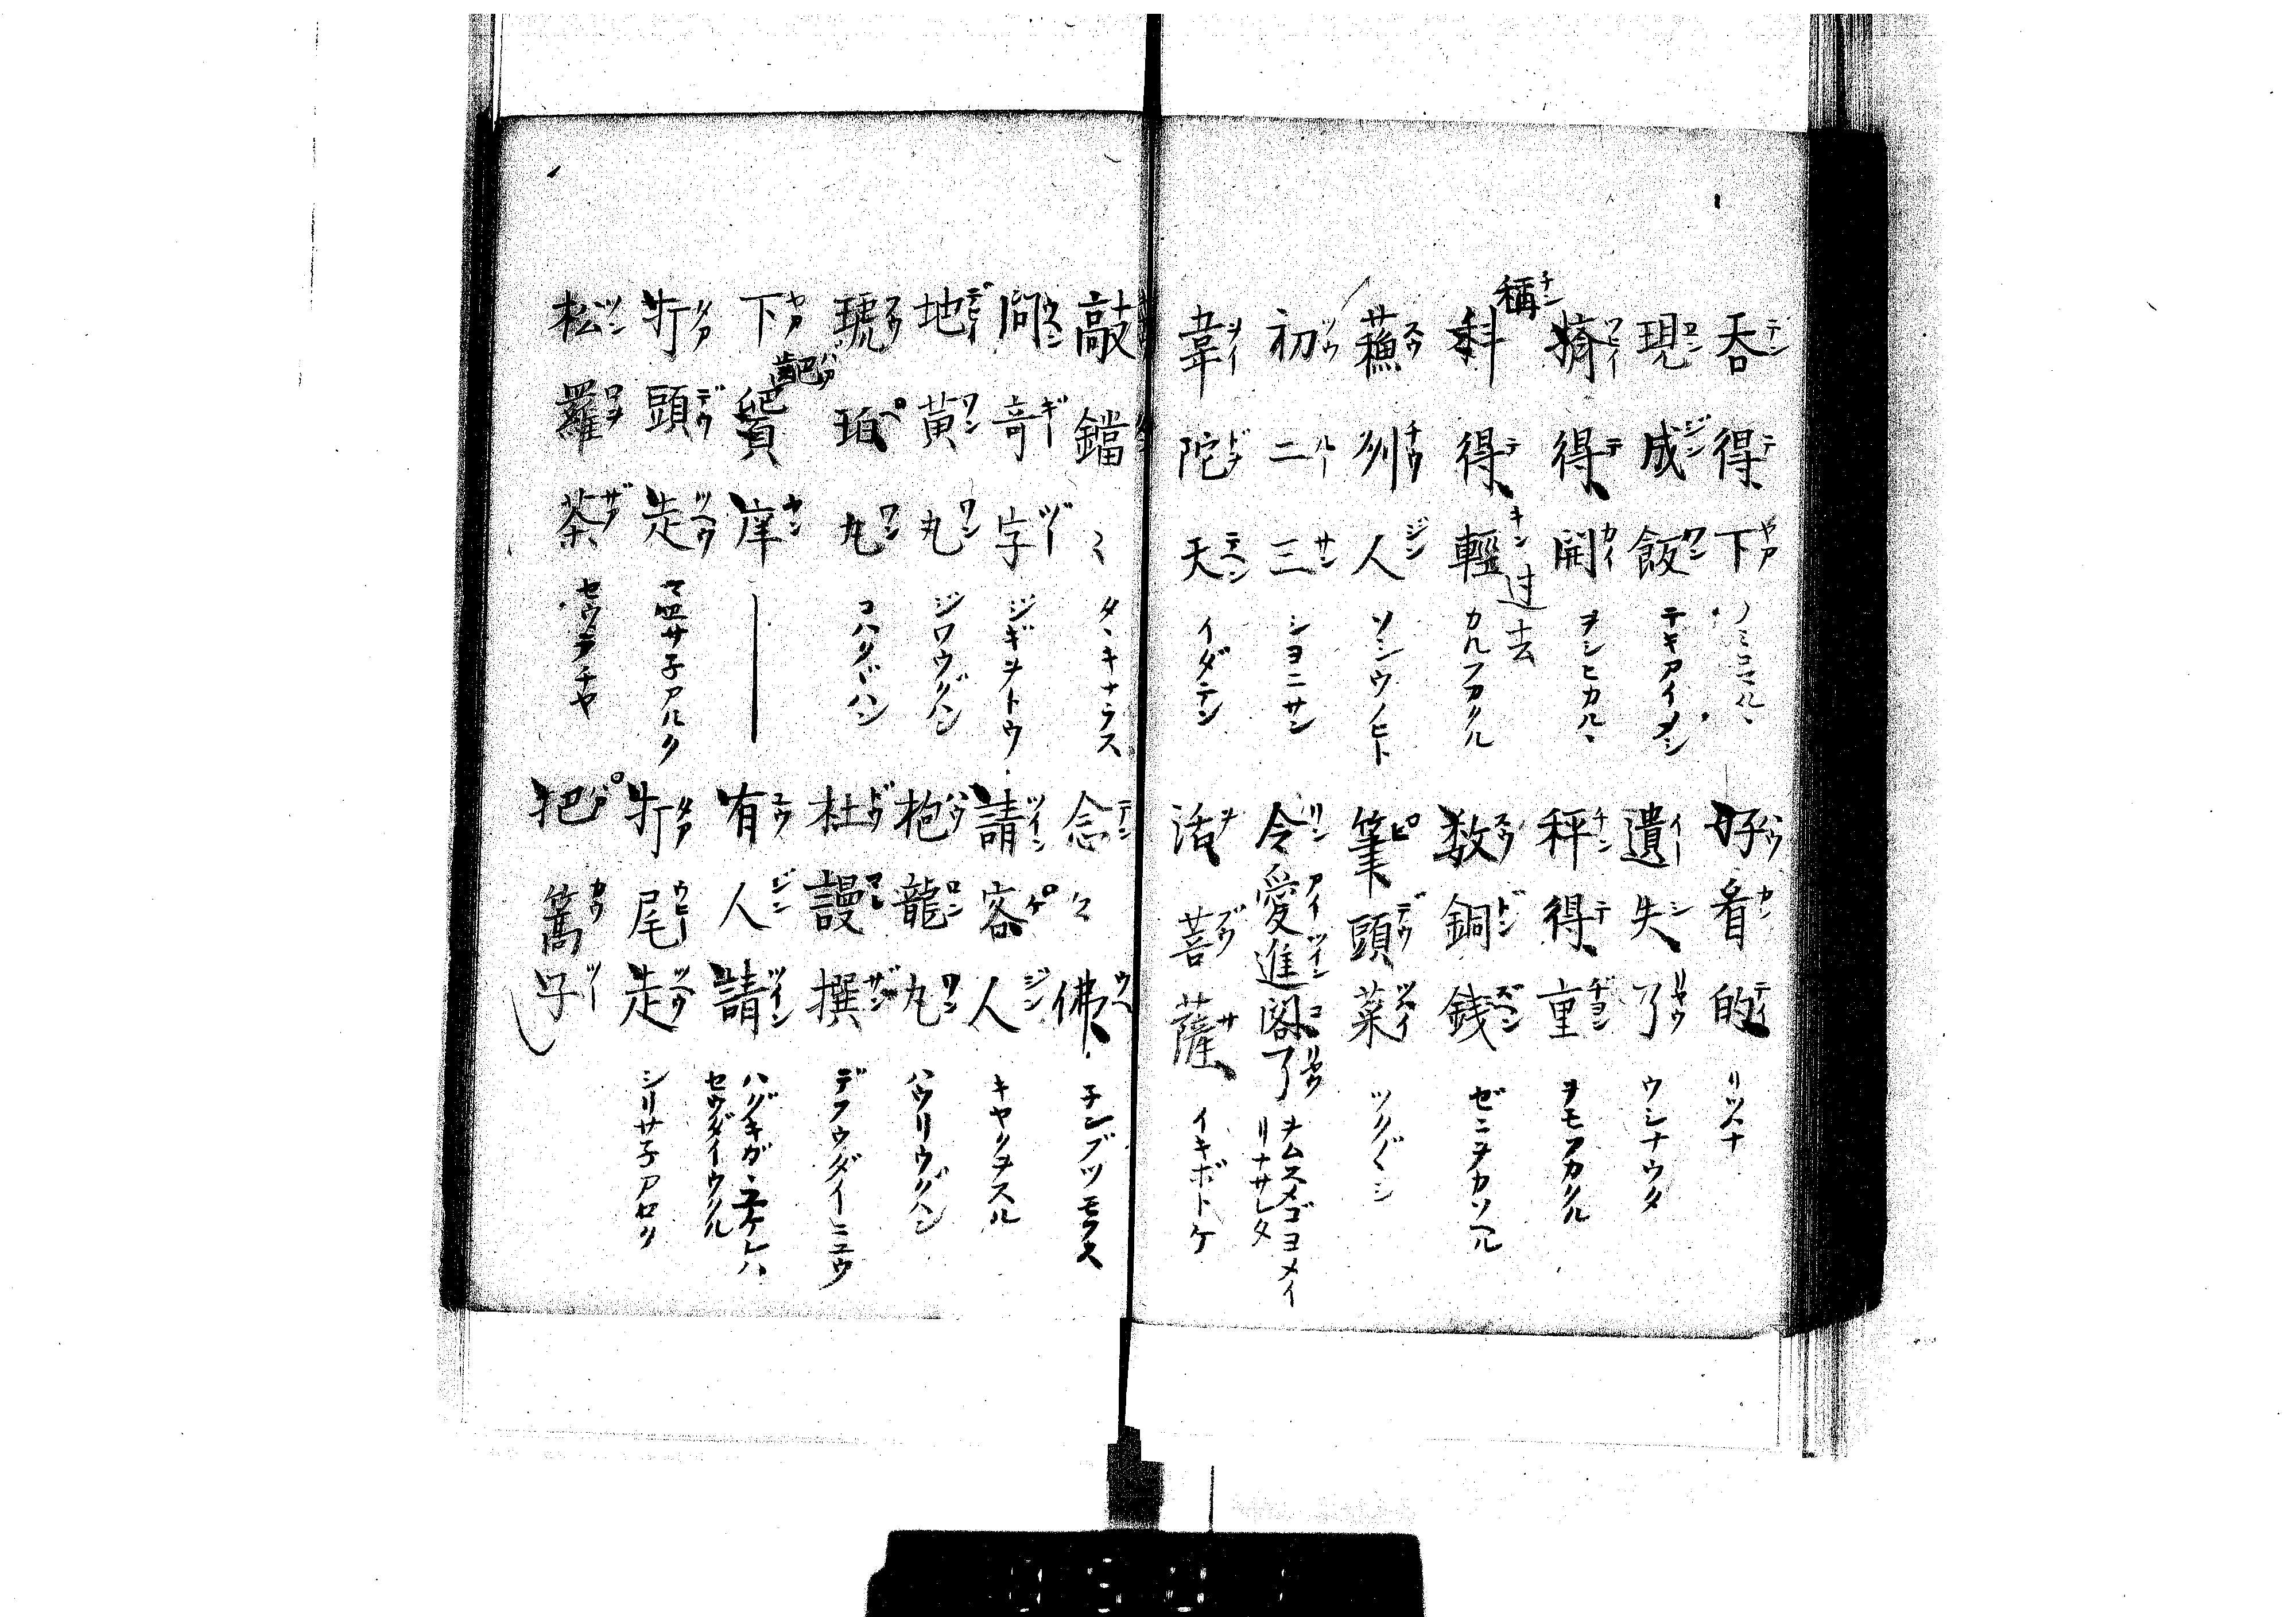 吞得下 ノミコマル、 好看的 リツハナ
現成飯 デキアイメシ 遺失了 ウシナウタ
得開 ヲシヒカル、 秤得重 ヲモフカヽル
稱
得輕 过去 カルフカヽル 数銅銭 ゼニヲカソヘル
蘓州人 ソシウノヒト 筆頭菜 ツク〲シ
初二三 シヨニサン 令愛進閣了 ヲムスメゴヨメイリナサレタ
韋陀天 イダテン 活菩薩 イキボトケ
敲鐺〻 タヽキナラス 念々佛 子ンブツモウス
問字 ジギヲトウ 請客人 キヤクヲスル
地黄丸 ジワウグハン 抱龍丸 ハウリウグハン
琥珀丸 コハクグハン 杜謾撰 デフウダイニユウ
下痒 ― 有人請 ハグキガ、ユケレハ セウダイウクル
頭走 サキ子アルク 尾走 シリサキ子アロク
松羅茶 セウラチヤ 把篙子